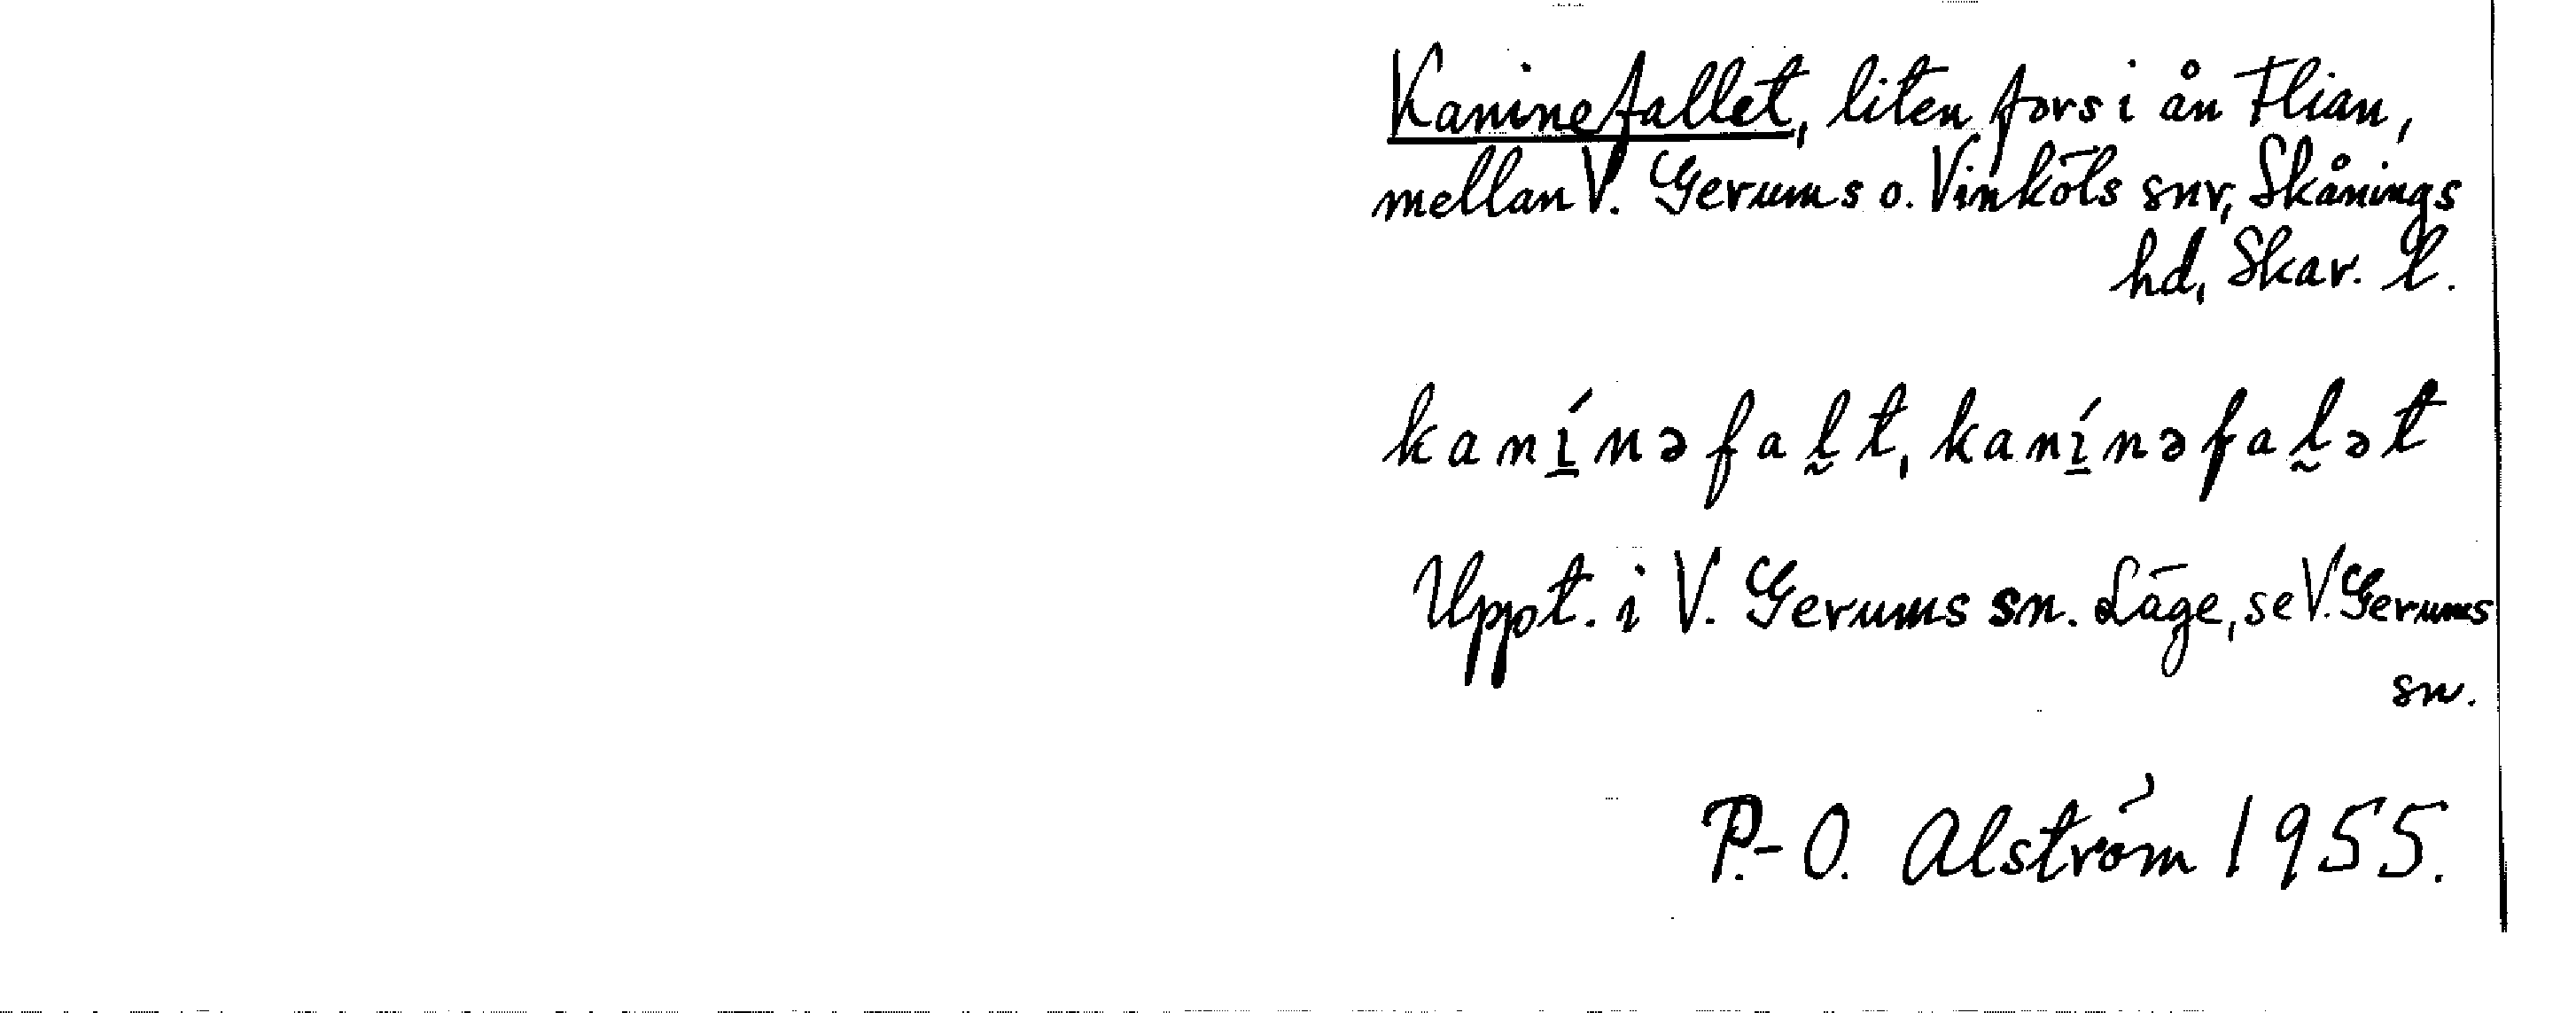 Kaninefallet, liten fors i ån Flian,
mellan V. Gerums o. Vinköls snr, Skånings
hd, Skar. l.
kaní̲nəfal̰t, kaní̲nəfal̰ət
Uppt. i V. Gerums sn. Läge, se V. Gerums
sn.
P.-O. Alström 1955.